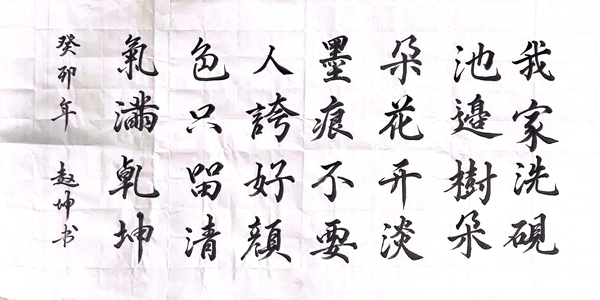 我家洗硯
池邊樹朵
朵花开淡
墨痕不要
人誇好顏
色只留清
氣滿乾坤
癸卯年 赵坤书